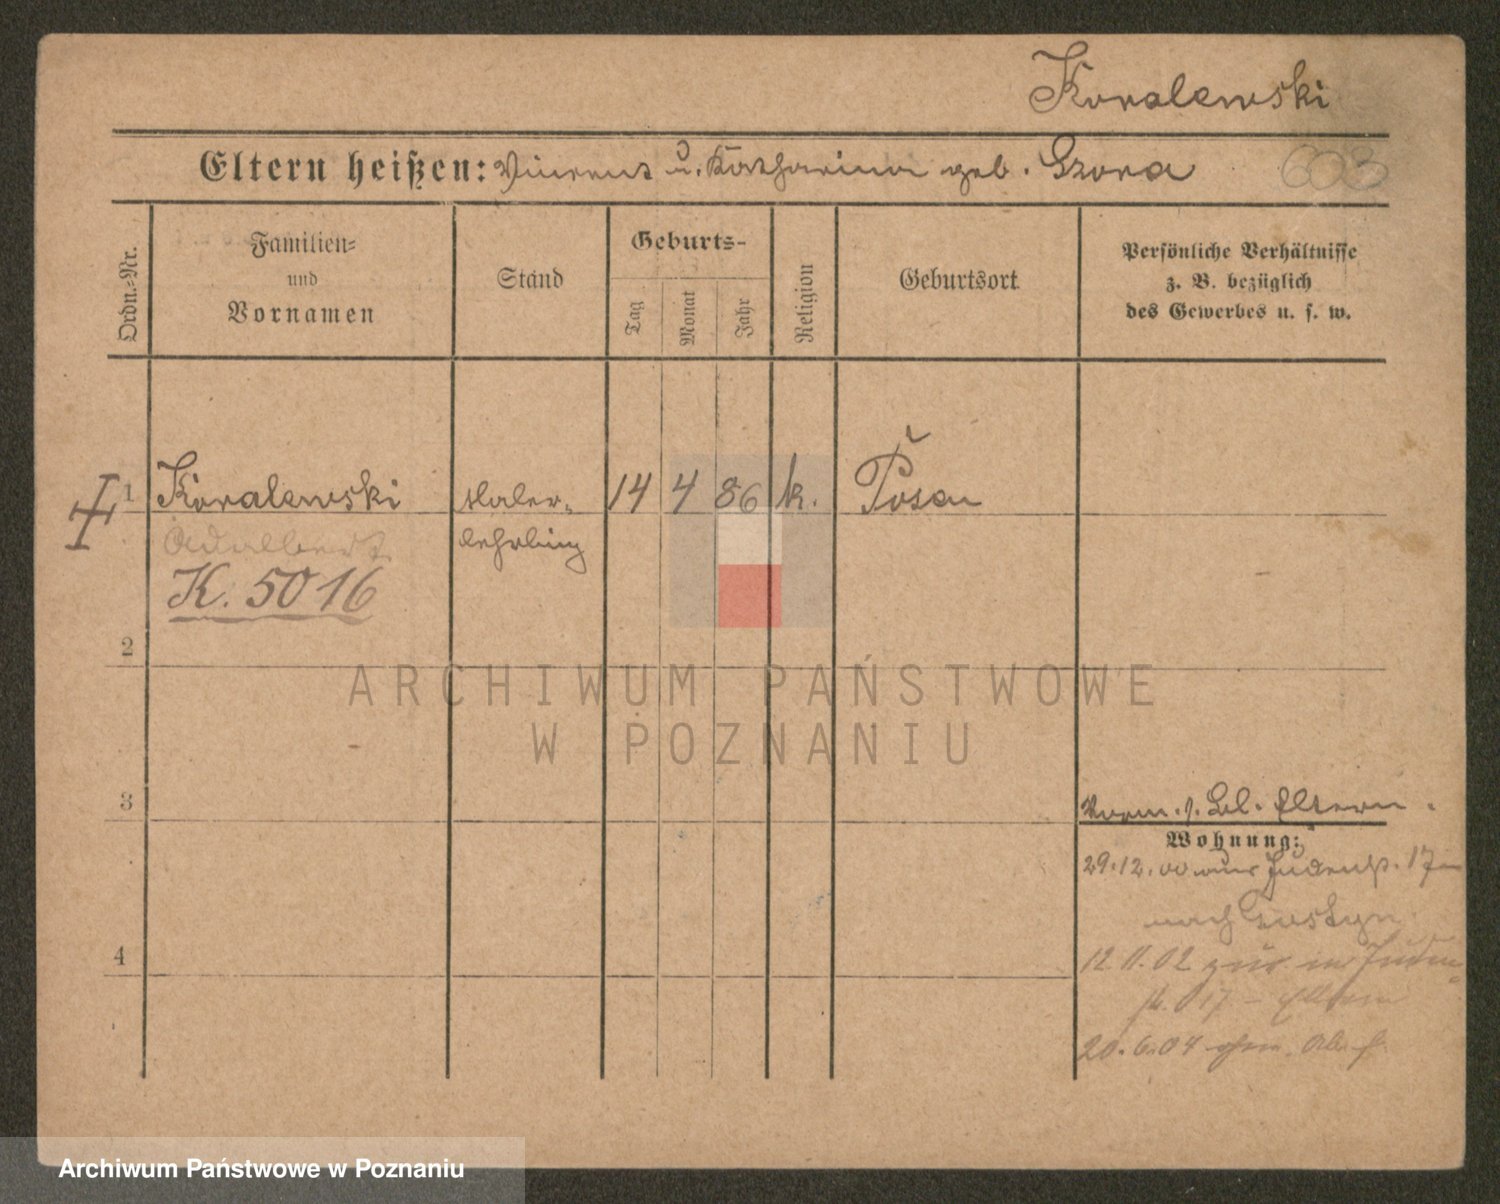 Kowalewski
Eltern heißen: Vincent u. Katharina geb. Gzora
603
Ordn.-Nr.
Familien-
und
Vornamen
Stand
Geburts-
Tag
Monat
Jahr
Religion
Geburtsort
Persönliche Verhältnisse
z. B. bezüglich
des Gewerbes u. s. w.
1 Kowalewski Maler- 14 4 86 k. Posen
Adalbert lehrling
K. 5016
2
ARCHIWUM PAŃSTWOWE
W POZNANIU
3
Vorm. s. Bl. Eltern.
Wohnung:
29.12.00 aus Judenstr. 17
nach Gostyn
4
12.11.02 zur. in Juden
str. 17 - Eltern
20.6.04
Archiwum Państwowe w Poznaniu